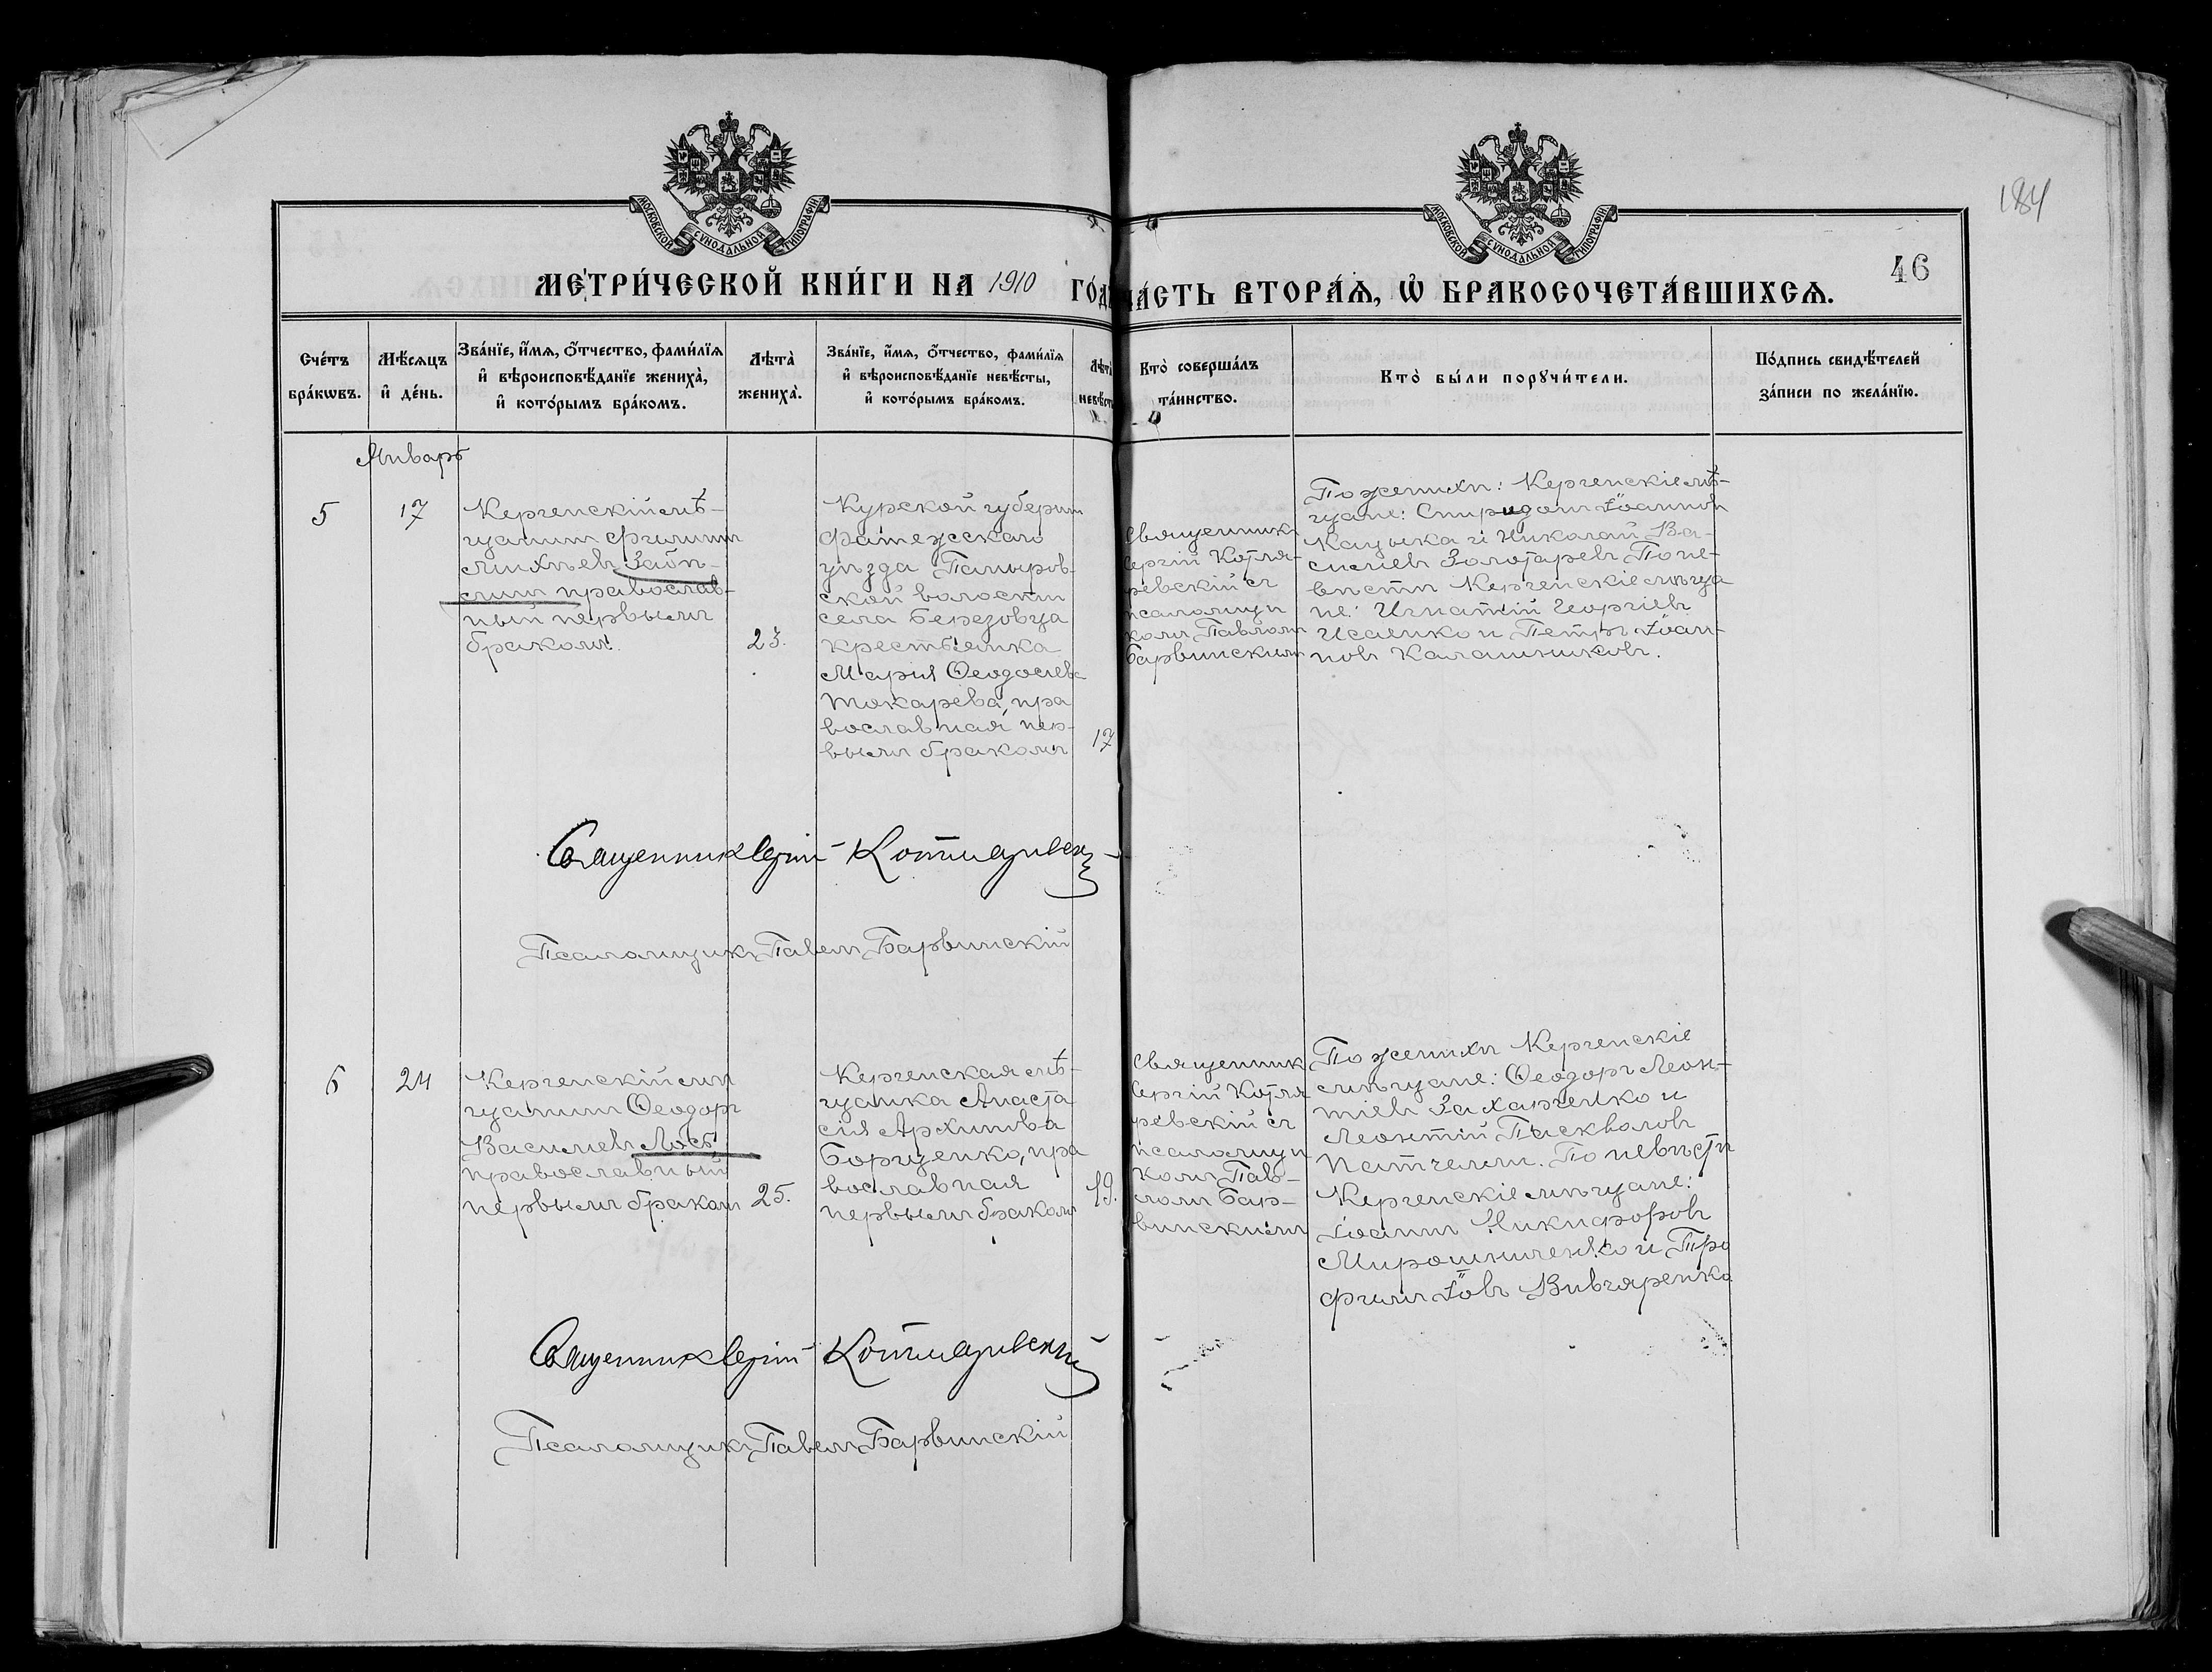 184
46
МОСКОВСКОЙ СѴНОДАЛЬНОЙ ТИПОГРАФІИ
МОСКОВСКОЙ СѴНОДАЛЬНОЙ ТИПОГРАФІИ
МЕТРИ́ЧЕСКОЙ КНИ́ГИ НА 1910 ГО́Д
ЧА́СТЬ ВТОРА́Ѧ, Ѡ҆ БРАКОСОЧЕТА́ВШИХСѦ.
Сче́тъ
бра́кѡвъ.
Мѣ́сѧцъ
и҆ де́нь.
Зва́нїе, и҆́мѧ, ѻ҆́тчество, фами́лїѧ
и҆ вѣроисповѣ́данїе жениха̀,
и҆ кото́рымъ бра́комъ.
Лѣта̀
жениха̀.
Зва́нїе, и҆́мѧ, ѻ҆́тчество, фами́лїѧ
и҆ вѣроисповѣ́данїе невѣ́сты,
и҆ кото́рымъ бра́комъ.
Лѣта̀
невѣ́ст
Кто̀ соверша́лъ
та́инство.
Кто̀ бы́ли порꙋчи́тели.
По́дпись свидѣ́телей
за́писи по жела́нїю.
Январь
5
17
Керченскій мѣ-
щанинъ Филиппъ
Михѣевъ
православ-
ный первымъ
бракомъ.
23.
Курской губерніи
Фатежскаго
уѣзда
ской волости
села Березовца
крестьянка
Марія Ѳеодосіева
Токарева, пра
вославная пер-
вымъ бракомъ
17
Священникъ
Сергій Котля-
ревскій съ
псаломщи
комъ Павломъ
Барвинскимъ
По женихѣ: Керченскіе мѣ-
щане: Спиридонъ Іоанновъ
Кацыка и Николай Ва-
силіевъ Золотаревъ По не-
вѣстѣ Керченскіе мѣща
не: Игнатій Георгіевъ
Исаенко и Петръ Іоан-
новъ Калашниковъ.
Священникъ Сергій Котляревскій
Псаломщикъ Павелъ Барвинскій
6
24
Керченскій мѣ
щанинъ Ѳеодоръ
Василіевъ Лось
православный
первымъ бракомъ
25.
Керченская мѣ-
щанка Анаста
сія Архипова
Борщенко, пра
вославная
первымъ бракомъ
19.
Священникъ
Сергій Котля
ревскій съ
псаломщи
комъ Пав-
ломъ Бар-
винскимъ
По женихѣ Керченскіе
мѣщане: Ѳеодоръ Леон-
тіевъ Захарченко и
Леонтій
По невѣстѣ
Керченскіе мѣщане:
Іоаннъ Никифоровъ
Мирошниченко и Тро
фимъ Іовъ Вивчаренко
Священникъ Сергій Котляревскій
Псаломщикъ Павелъ Барвинскій